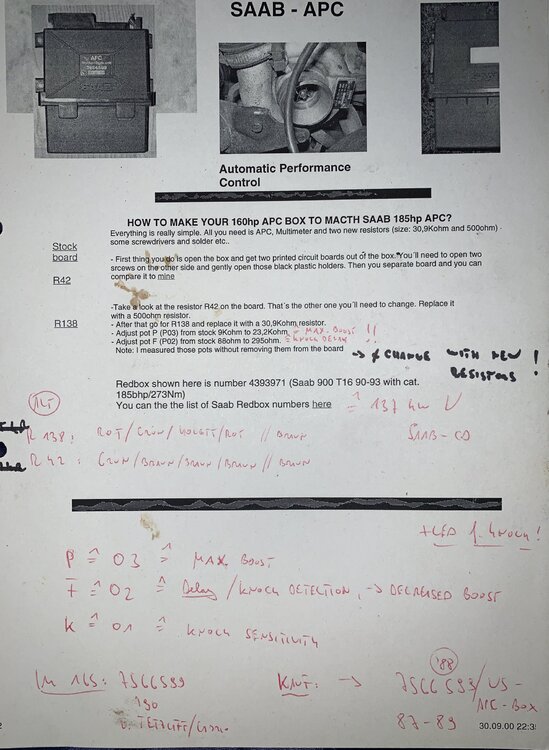 SAAB - APC
APC
Automatic Performance
Control
HOW TO MAKE YOUR 160hp APC BOX TO MACTH SAAB 185hp APC?
Everything is really simple. All you need is APC, Multimeter and two new resistors (size: 30,9Kohm and 500ohm) -
some screwdrivers and solder etc..
Stock
board
- First thing you´ll do is open the box and get two printed circuit boards out of the box. You´ll need to open two
srcews on the other side and gently open those black plastic holders. Then you separate board and you can
compare it to mine
R42
-Take a look at the resistor R42 on the board. That´s the other one you´ll need to change. Replace it
with a 500ohm resistor.
R138
- After that go for R138 and replace it with a 30,9Kohm resistor.
- Adjust pot P (P03) from stock 9Kohm to 23,2Kohm = MAX. BOOST !!
- Adjust pot F (P02) from stock 88ohm to 295ohm. = KNOCK DELAY
Note: I measured those pots without removing them from the board
→ CHANGE WITH NEW
RESISTORS!
Redbox shown here is number 4393971 (Saab 900 T16 90-93 with cat.
185bhp/273Nm)
You can the the list of Saab Redbox numbers here ≙ 137 kW
ALT
SAAB-CD
R 138: ROT / GRÜN / VIOLETT / ROT // BRAUN
R 42: GRÜN / BRAUN / BRAUN / BRAUN // BRAUN
+LED f. KNOCK!
P ≙ 03 ≙ MAX. BOOST
F ≙ 02 ≙ Delay / KNOCK DETECTION, → DECREASED BOOST
K ≙ 01 ≙ KNOCK SENSITIVITY
Im 16S: 7566599
KNUT: → 7566593/US-
'88
APC-BOX
87-89
30.09.00 22:3